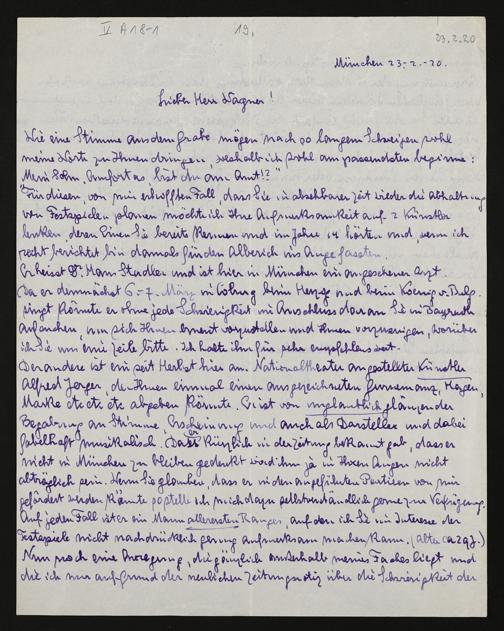 V A 18-1 19. 23.2.20
München 23.-2.-20.
Lieber Herr Wagner!
Wie eine Stimme aus dem Grabe mögen nach so langem Schweigen wohl
meine Worte zu Ihnen dringen, weshalb ich wohl am passendsten beginne:
"Mein Sohn, Amfortas, bist du am Amt!?"
Für diesen, von mir erhofften Fall, dass Sie in absehbarer Zeit wieder die Abhaltung
von Festspielen planen möchte ich Ihre Aufmerksamkeit auf 2 Künstler
lenken, deren Einen Sie bereits kennen und im Jahre 14 hörten und, wenn ich
recht berichtet bin damals für den Alberich ins Auge fassten.
Er heisst Dr. Hans Stadler und ist hier in München ein angesehener Arzt.
Da er demnächst 6.-7. März in Coburg beim Herzog und beim Koenig v. Bulg.
singt könnte er ohne jede Schwierigkeit im Anschluss daran Sie in Bayreuth
aufsuchen, um sich Ihnen erneut vorzustellen und Ihnen vorzusingen, worüber
ich Sie um eine Zeile bitte. Ich halte ihn für sehr empfehlenswert.
Der andere ist ein seit Herbst hier am Nationaltheater angestellter Künstler
Alfred Jerger, der Ihnen einmal einen ausgezeichneten Gurnemanz, Hagen,
Marke etc etc etc abgeben könnte. Er ist von unglaublich glänzender
Begabung an Stimme, Erscheinung und auch als Darsteller und dabei
fabelhaft musikalisch. Dass er kürzlich in der Zeitung bekannt gab, dass er
nicht in München zu bleiben gedenkt wird ihm ja in Ihren Augen nicht
abträglich sein. Wenn Sie glauben, dass er in den angeführten Partieen von mir
gefördert werden könnte so stelle ich mich dazu selbstverständlich gerne zur Verfügung.
Auf jeden Fall ist er ein Mann allerersten Ranges, auf den ich Sie im Interesse der
Festspiele nicht nachdrücklich genug aufmerksam machen kann. (Alter ca 29 J.)
Nun noch eine Anregung, die gänzlich ausserhalb meines Faches liegt und
die ich nur auf Grund der neulichen Zeitungsnotiz über die Schwierigkeit der